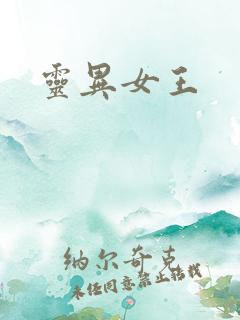 靈異女王
纳尔奇克
未经同意禁止转载